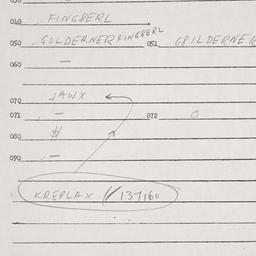 040 FINGERL
050 GOLDERNERFINGERL 051 GOILDERNER
060 —
070 JAWX
071 — 072 0
080 $
090 —
KREPLAX // 137160